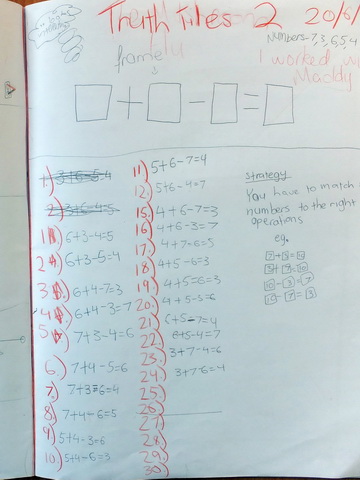 Truth Tiles 2 20/6/
Numbers-7,3,6,5,4
I worked
Maddy
frame
□ + □ - □ = □
1) 3+6-5=4
2) 3+6-4=5
1) 6+3-4=5
2) 6+3-5=4
3) 6+4-7=3
4) 6+4-3=7
5) 7+3-4=6
6) 7+4-5=6
7) 7+3-6=4
8) 7+4-6=5
9) 5+4-3=6
10) 5+4-6=3
11) 5+6-7=4
12) 5+6-4=7
15) 4+6-7=3
16) 4+6-3=7
17) 4+7-6=5
18) 4+5-6=3
19) 4+5-6=3
20) 4+5-3=6
21) 6+5-7=4
22) 6+5-4=7
23) 3+7-4=6
24) 3+7-6=4
25)
26)
27)
28)
29)
30)
strategy
You have to match
numbers to the right
operations
eg.
7+3=10
3+7=10
10-3=7
10-7=3